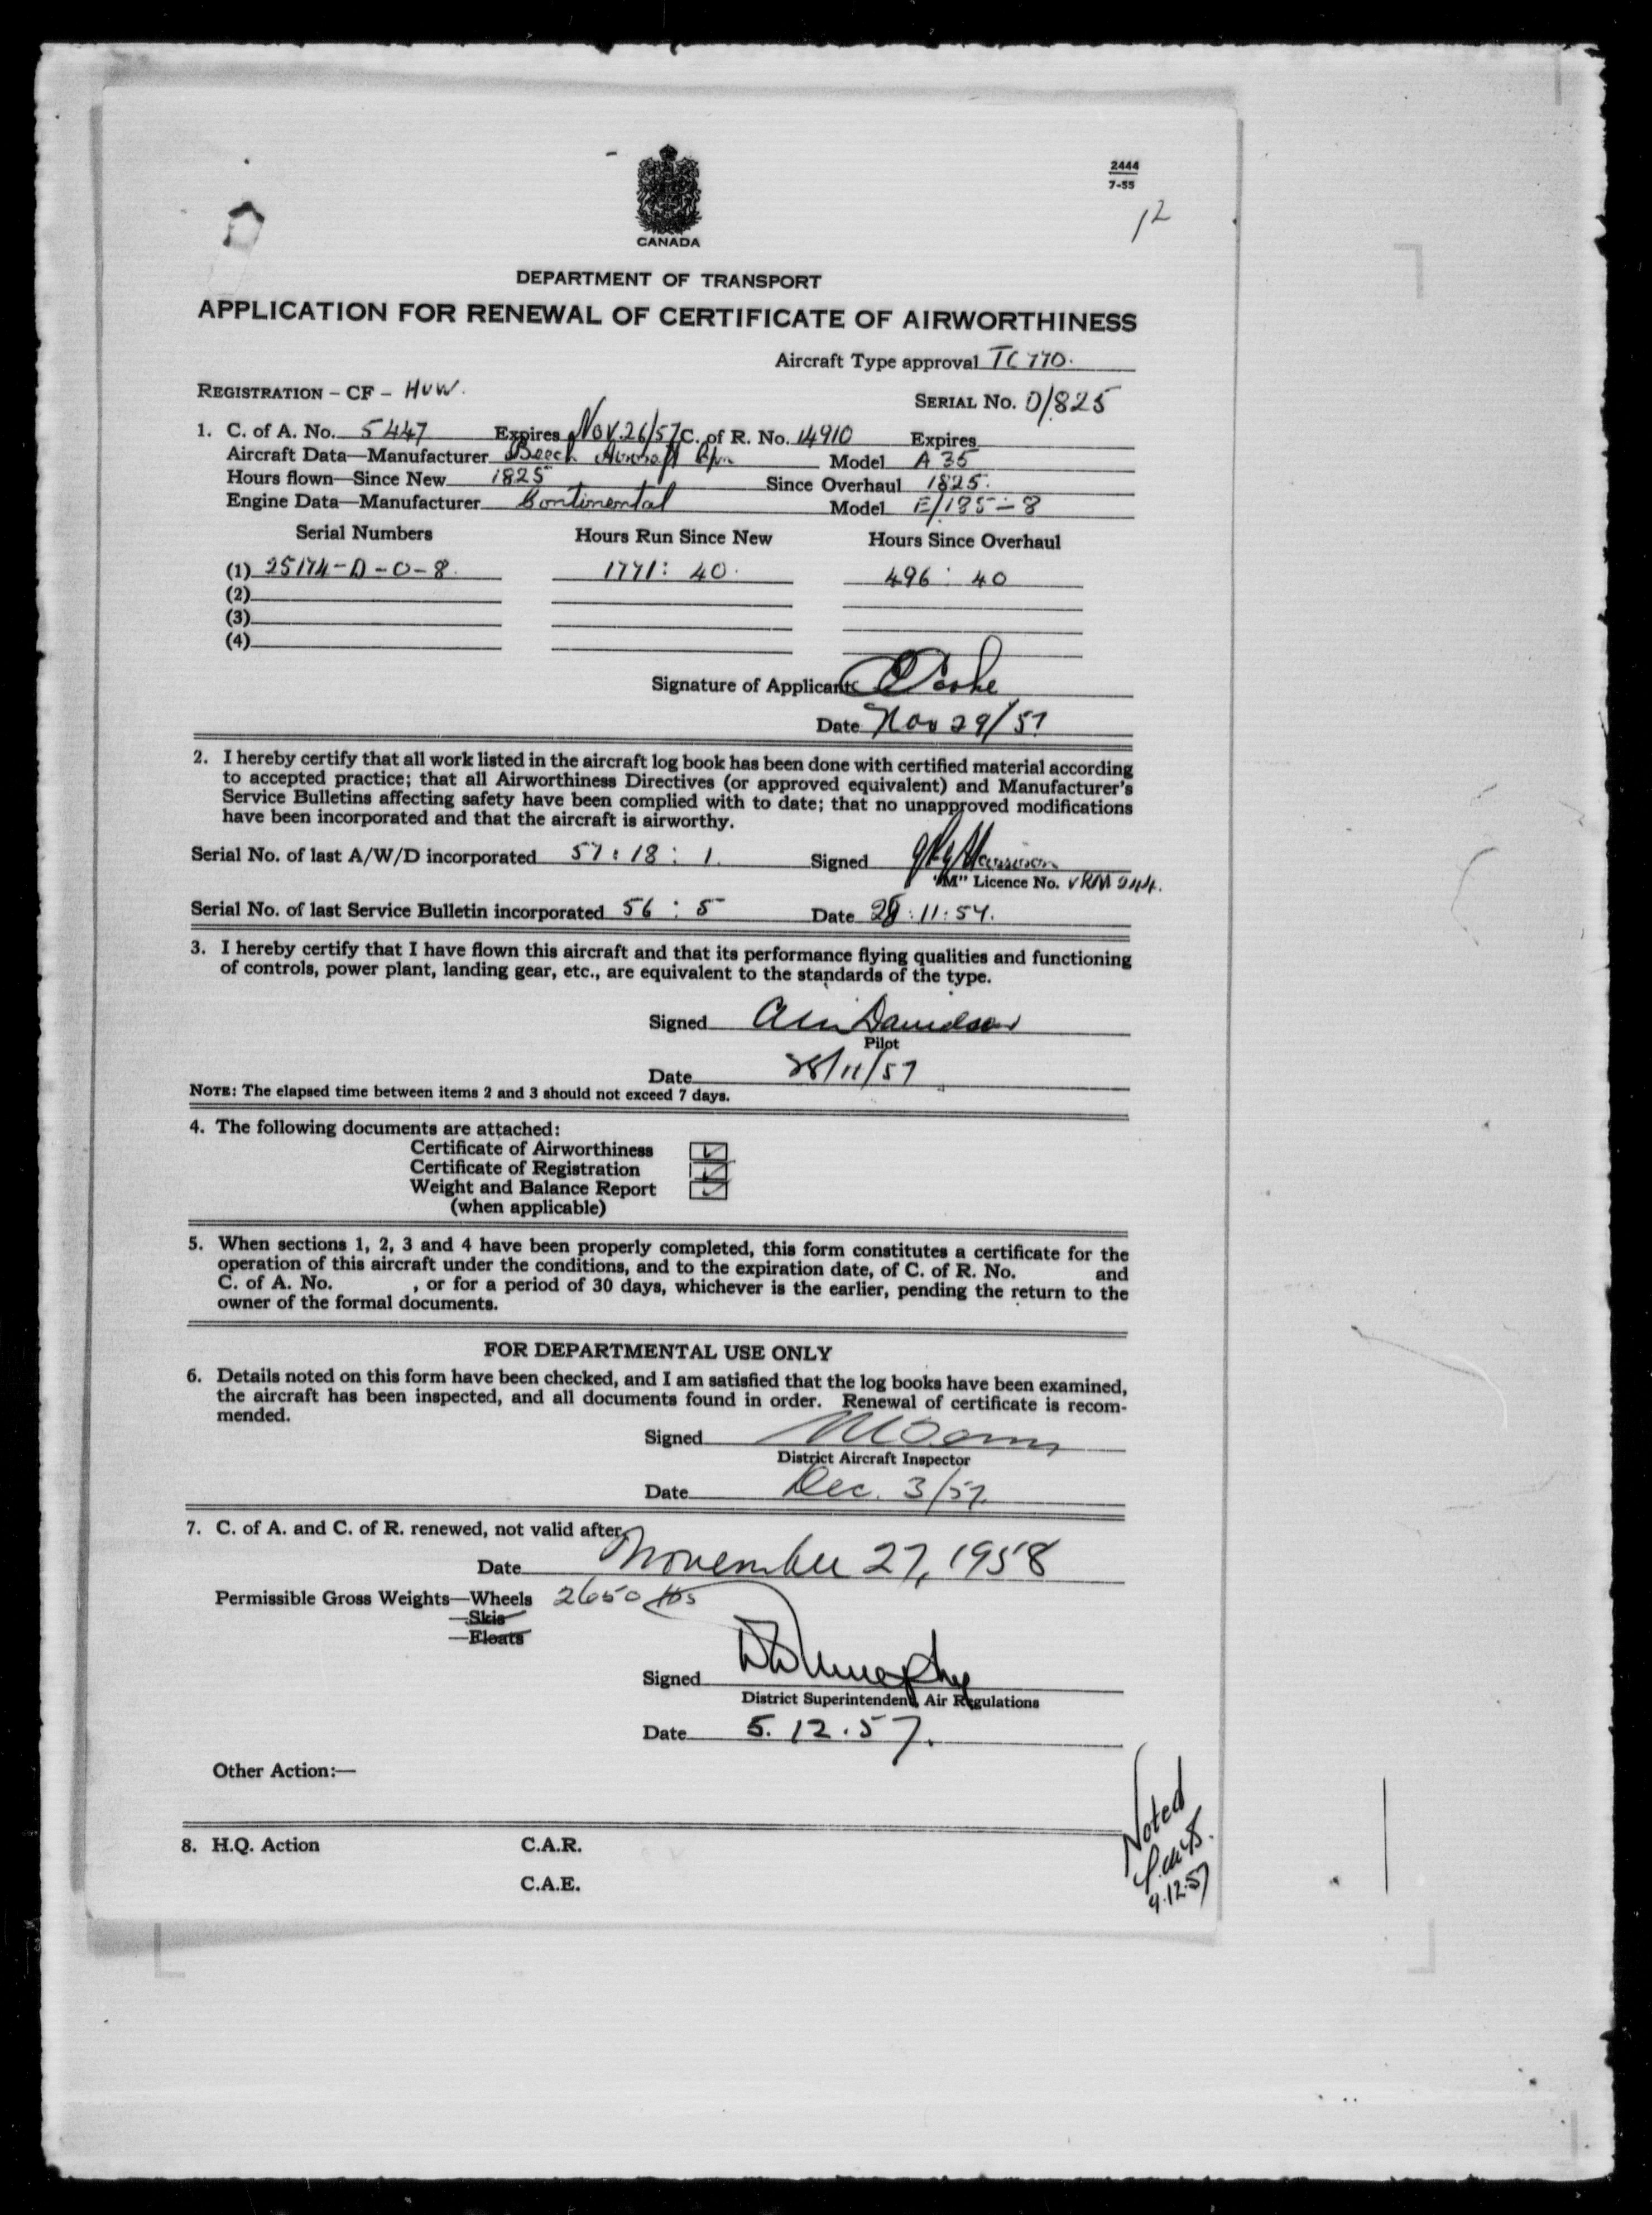 2444
7-55
12
CANADA
DEPARTMENT OF TRANSPORT
APPLICATION FOR RENEWAL OF CERTIFICATE OF AIRWORTHINESS
Aircraft Type approval TC 770.
REGISTRATION - CF - HUW.
SERIAL No. D/825
1. C. of A. No. 5447 Expires Nov. 26/57 C. of R. No. 14910 Expires
Aircraft Data—Manufacturer Beech Aircraft Model A 35
Hours flown—Since New 1825 Since Overhaul 1825.
Engine Data—Manufacturer Continental Model E/185-8
Serial Numbers Hours Run Since New Hours Since Overhaul
(1) 25174-D-0-8. 1771: 40. 496: 40
(2)
(3)
(4)
Signature of Applicant
Date Nov 29/57
2. I hereby certify that all work listed in the aircraft log book has been done with certified material according
to accepted practice; that all Airworthiness Directives (or approved equivalent) and Manufacturer's
Service Bulletins affecting safety have been complied with to date; that no unapproved modifications
have been incorporated and that the aircraft is airworthy.
Serial No. of last A/W/D incorporated 57:18:1. Signed
"M" Licence No.
Serial No. of last Service Bulletin incorporated 56:5 Date 28:11:57.
3. I hereby certify that I have flown this aircraft and that its performance flying qualities and functioning
of controls, power plant, landing gear, etc., are equivalent to the standards of the type.
Signed Davidson
Pilot
Date 28/11/57
NOTE: The elapsed time between items 2 and 3 should not exceed 7 days.
4. The following documents are attached:
Certificate of Airworthiness
Certificate of Registration
Weight and Balance Report
(when applicable)
5. When sections 1, 2, 3 and 4 have been properly completed, this form constitutes a certificate for the
operation of this aircraft under the conditions, and to the expiration date, of C. of R. No. and
C. of A. No. , or for a period of 30 days, whichever is the earlier, pending the return to the
owner of the formal documents.
FOR DEPARTMENTAL USE ONLY
6. Details noted on this form have been checked, and I am satisfied that the log books have been examined,
the aircraft has been inspected, and all documents found in order. Renewal of certificate is recom-
mended.
Signed
District Aircraft Inspector
Date Dec. 3/57.
7. C. of A. and C. of R. renewed, not valid after
Date November 27, 1958
Permissible Gross Weights—Wheels 2650 lbs
—Skis
—Floats
Signed
District Superintendent, Air Regulations
Date 5.12.57.
Other Action:—
8. H.Q. Action C.A.R.
C.A.E.
Noted
9.12.57